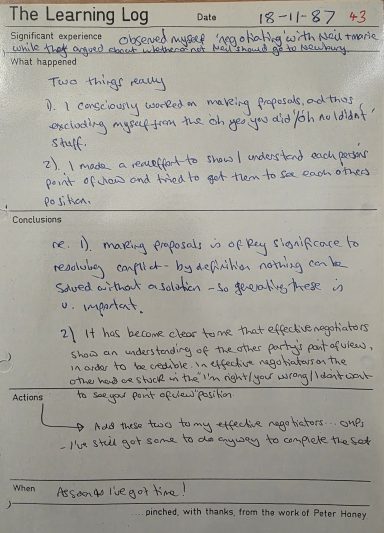 The Learning Log
Date 18-11-87 43
Significant experience Observed myself 'negotiating' with Neil + marie
while they argued about whether or not Neil should go to Newbury.
What happened
Two things really
1). I consciously worked on making proposals, and thus
excluding myself from the 'oh yes you did/oh no I didn't'
stuff.
2). I made a real effort to show I understand each persons
point of view and tried to get them to see each others
position.
Conclusions
re. 1). making proposals is of key significance to
resolving conflict - by definition nothing can be
solved without a solution - so generating these is
v. important.
2) It has become clear to me that effective negotiators
show an understanding of the other party's point of view,
in order to be credible. In effective negotiators on the
other hand are stuck in the "I'm right/your wrong/I don't want
to see your point of view" position.
Actions
Add these two to my effective negotiators ... OHPs
- I've still got some to do anyway to complete the set
When As soon as I've got time!
....pinched, with thanks, from the work of Peter Honey